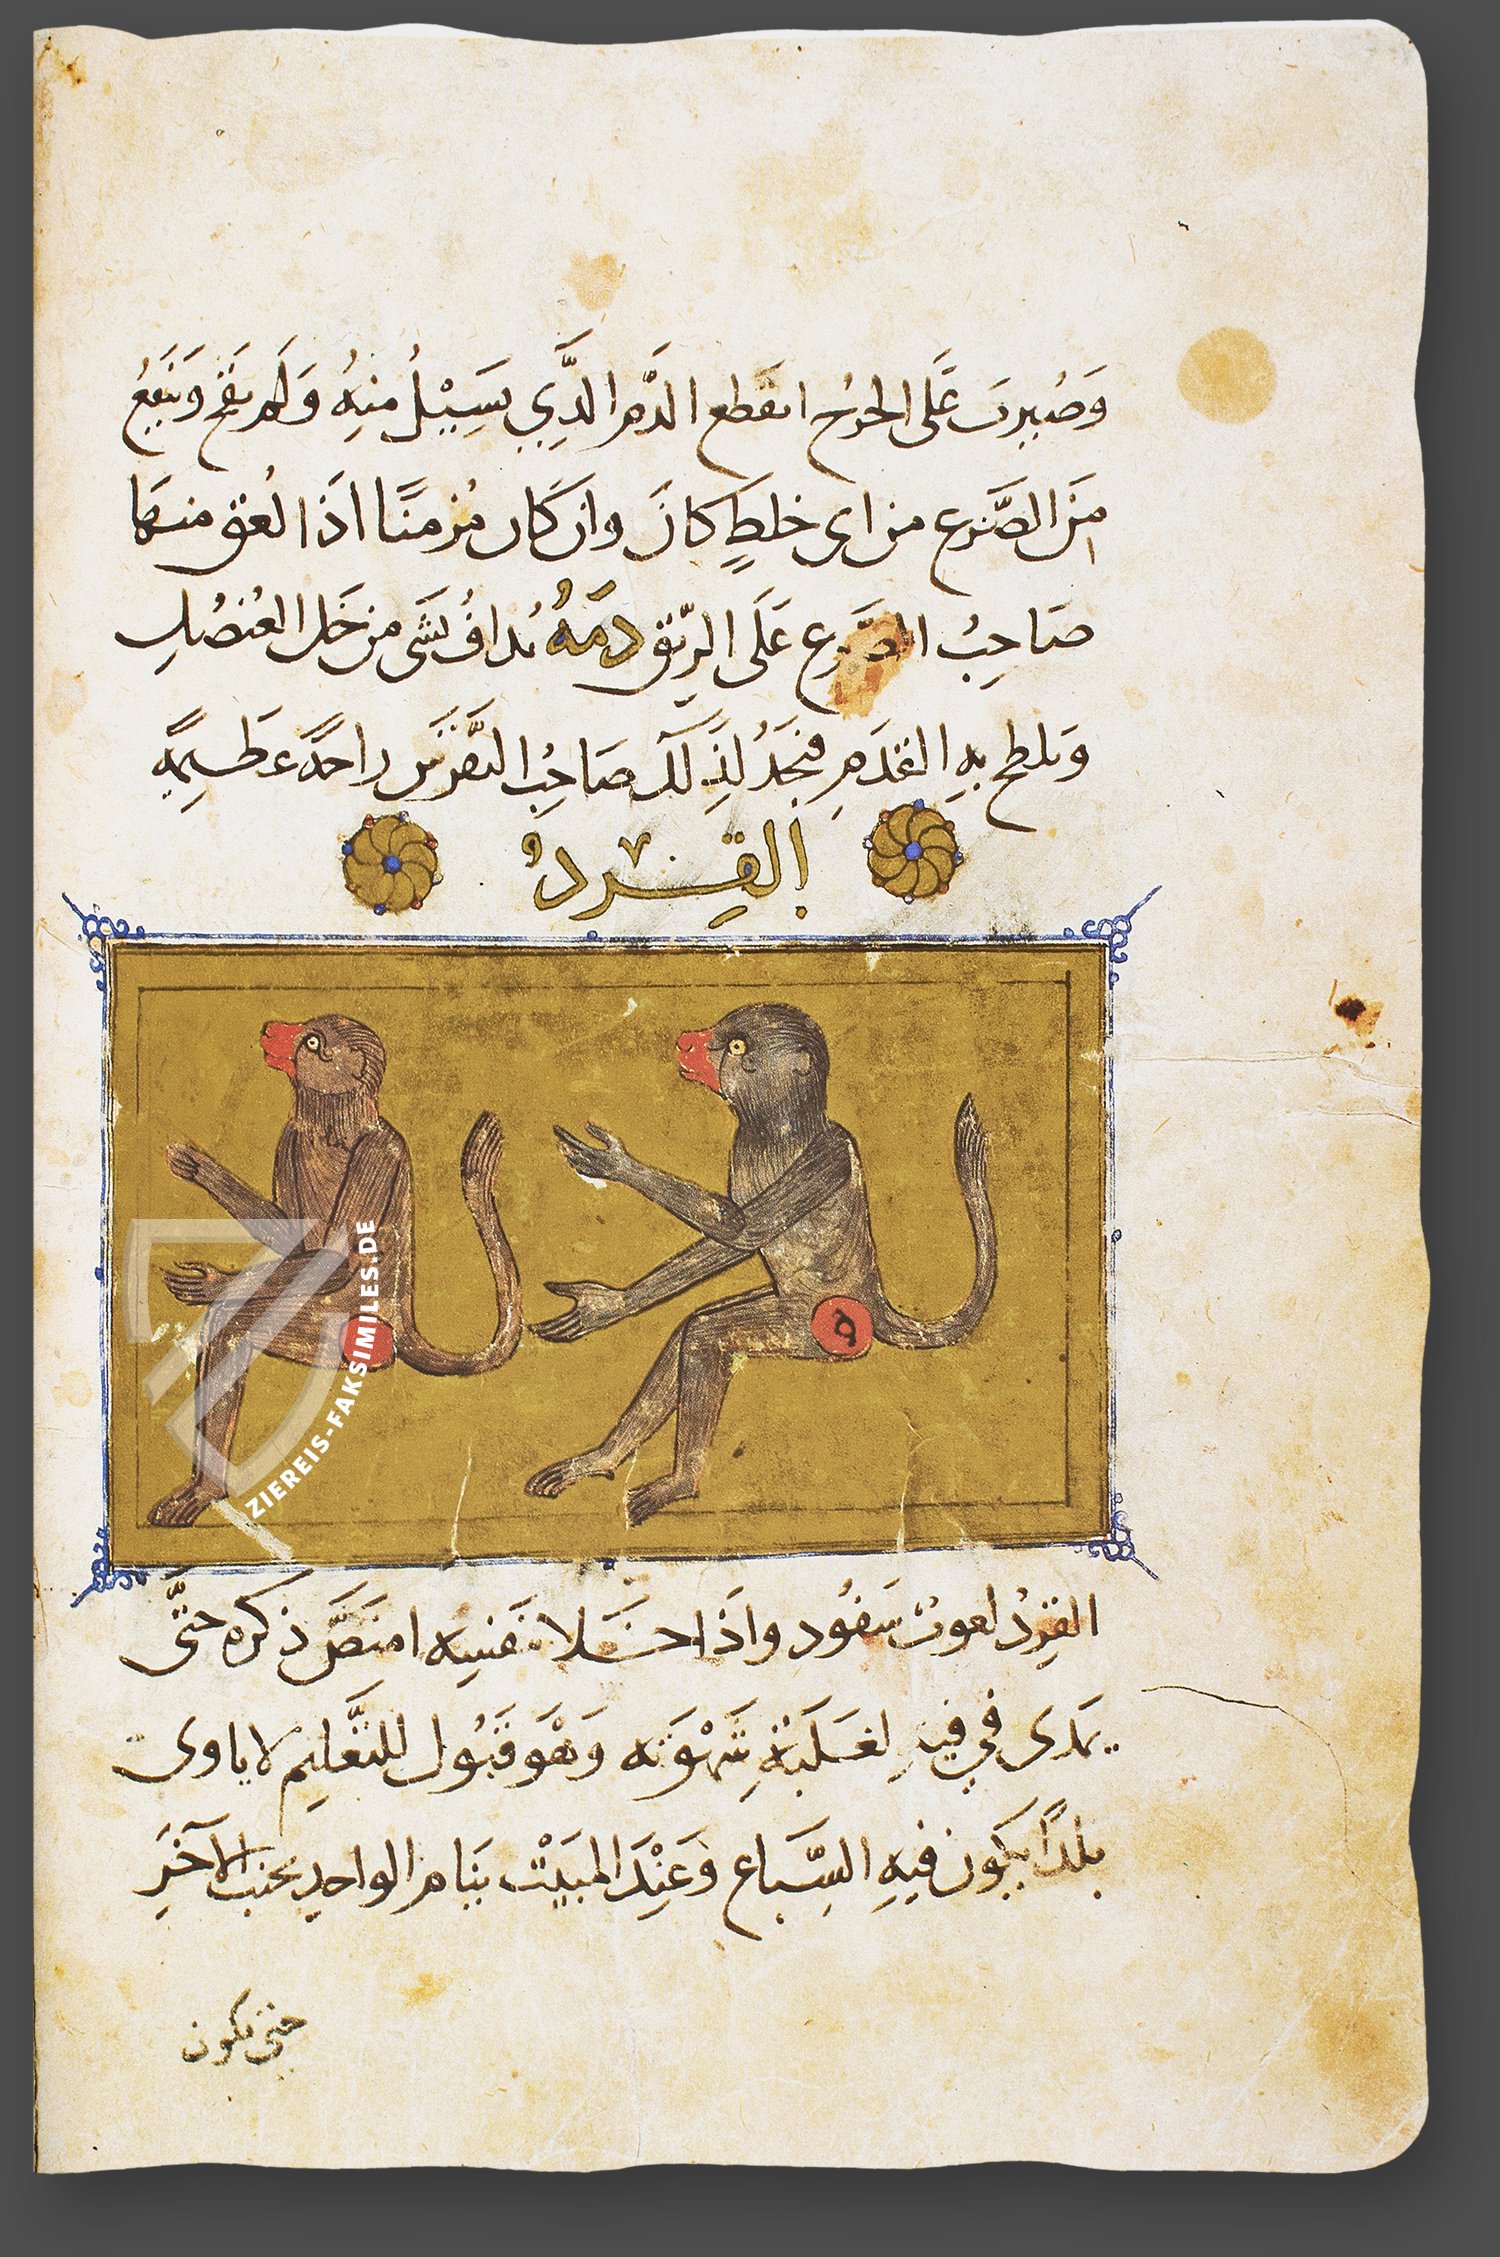 وَصُيرتَ عَلى الجرُح انقَطع الدَّم الَّذِي يَسِيْلُ مِنهُ وَلَم يَقِح وَيَنَفعُ
مِنَ الصَّرع من اى خلطٍ كانَ وان كَان مُزمنًا اذَا لُعق منهَا
صَاحِبُ الصَّرع عَلَى الرِيّق دمَهُ يُدافُ بشَى من خَل العُنصُلِ
وَيلطح بهِ القَدَمِ فيَجَدُ لذَلكَ صَاحِبُ النَّقرَس راحَةً عَظِيمَة
القِردُ
القِردُ لعوبٌ سَفُود واذَا خَلا بنَفسِه امتَصَّ ذكره حتَّى
يمَدى فِي فيهِ لغَلَبَةِ شَهْوَته وَهْوَ قَبُول للتَّعَلِيم لا ياوى
بلدًا يَكون فيهِ السِّبَاع وَعَنِدَ المبَيْت يَنام الواحدِ بجنب الآخَرِ
حتى يكون
ZIEREIS-FAKSIMILES.DE